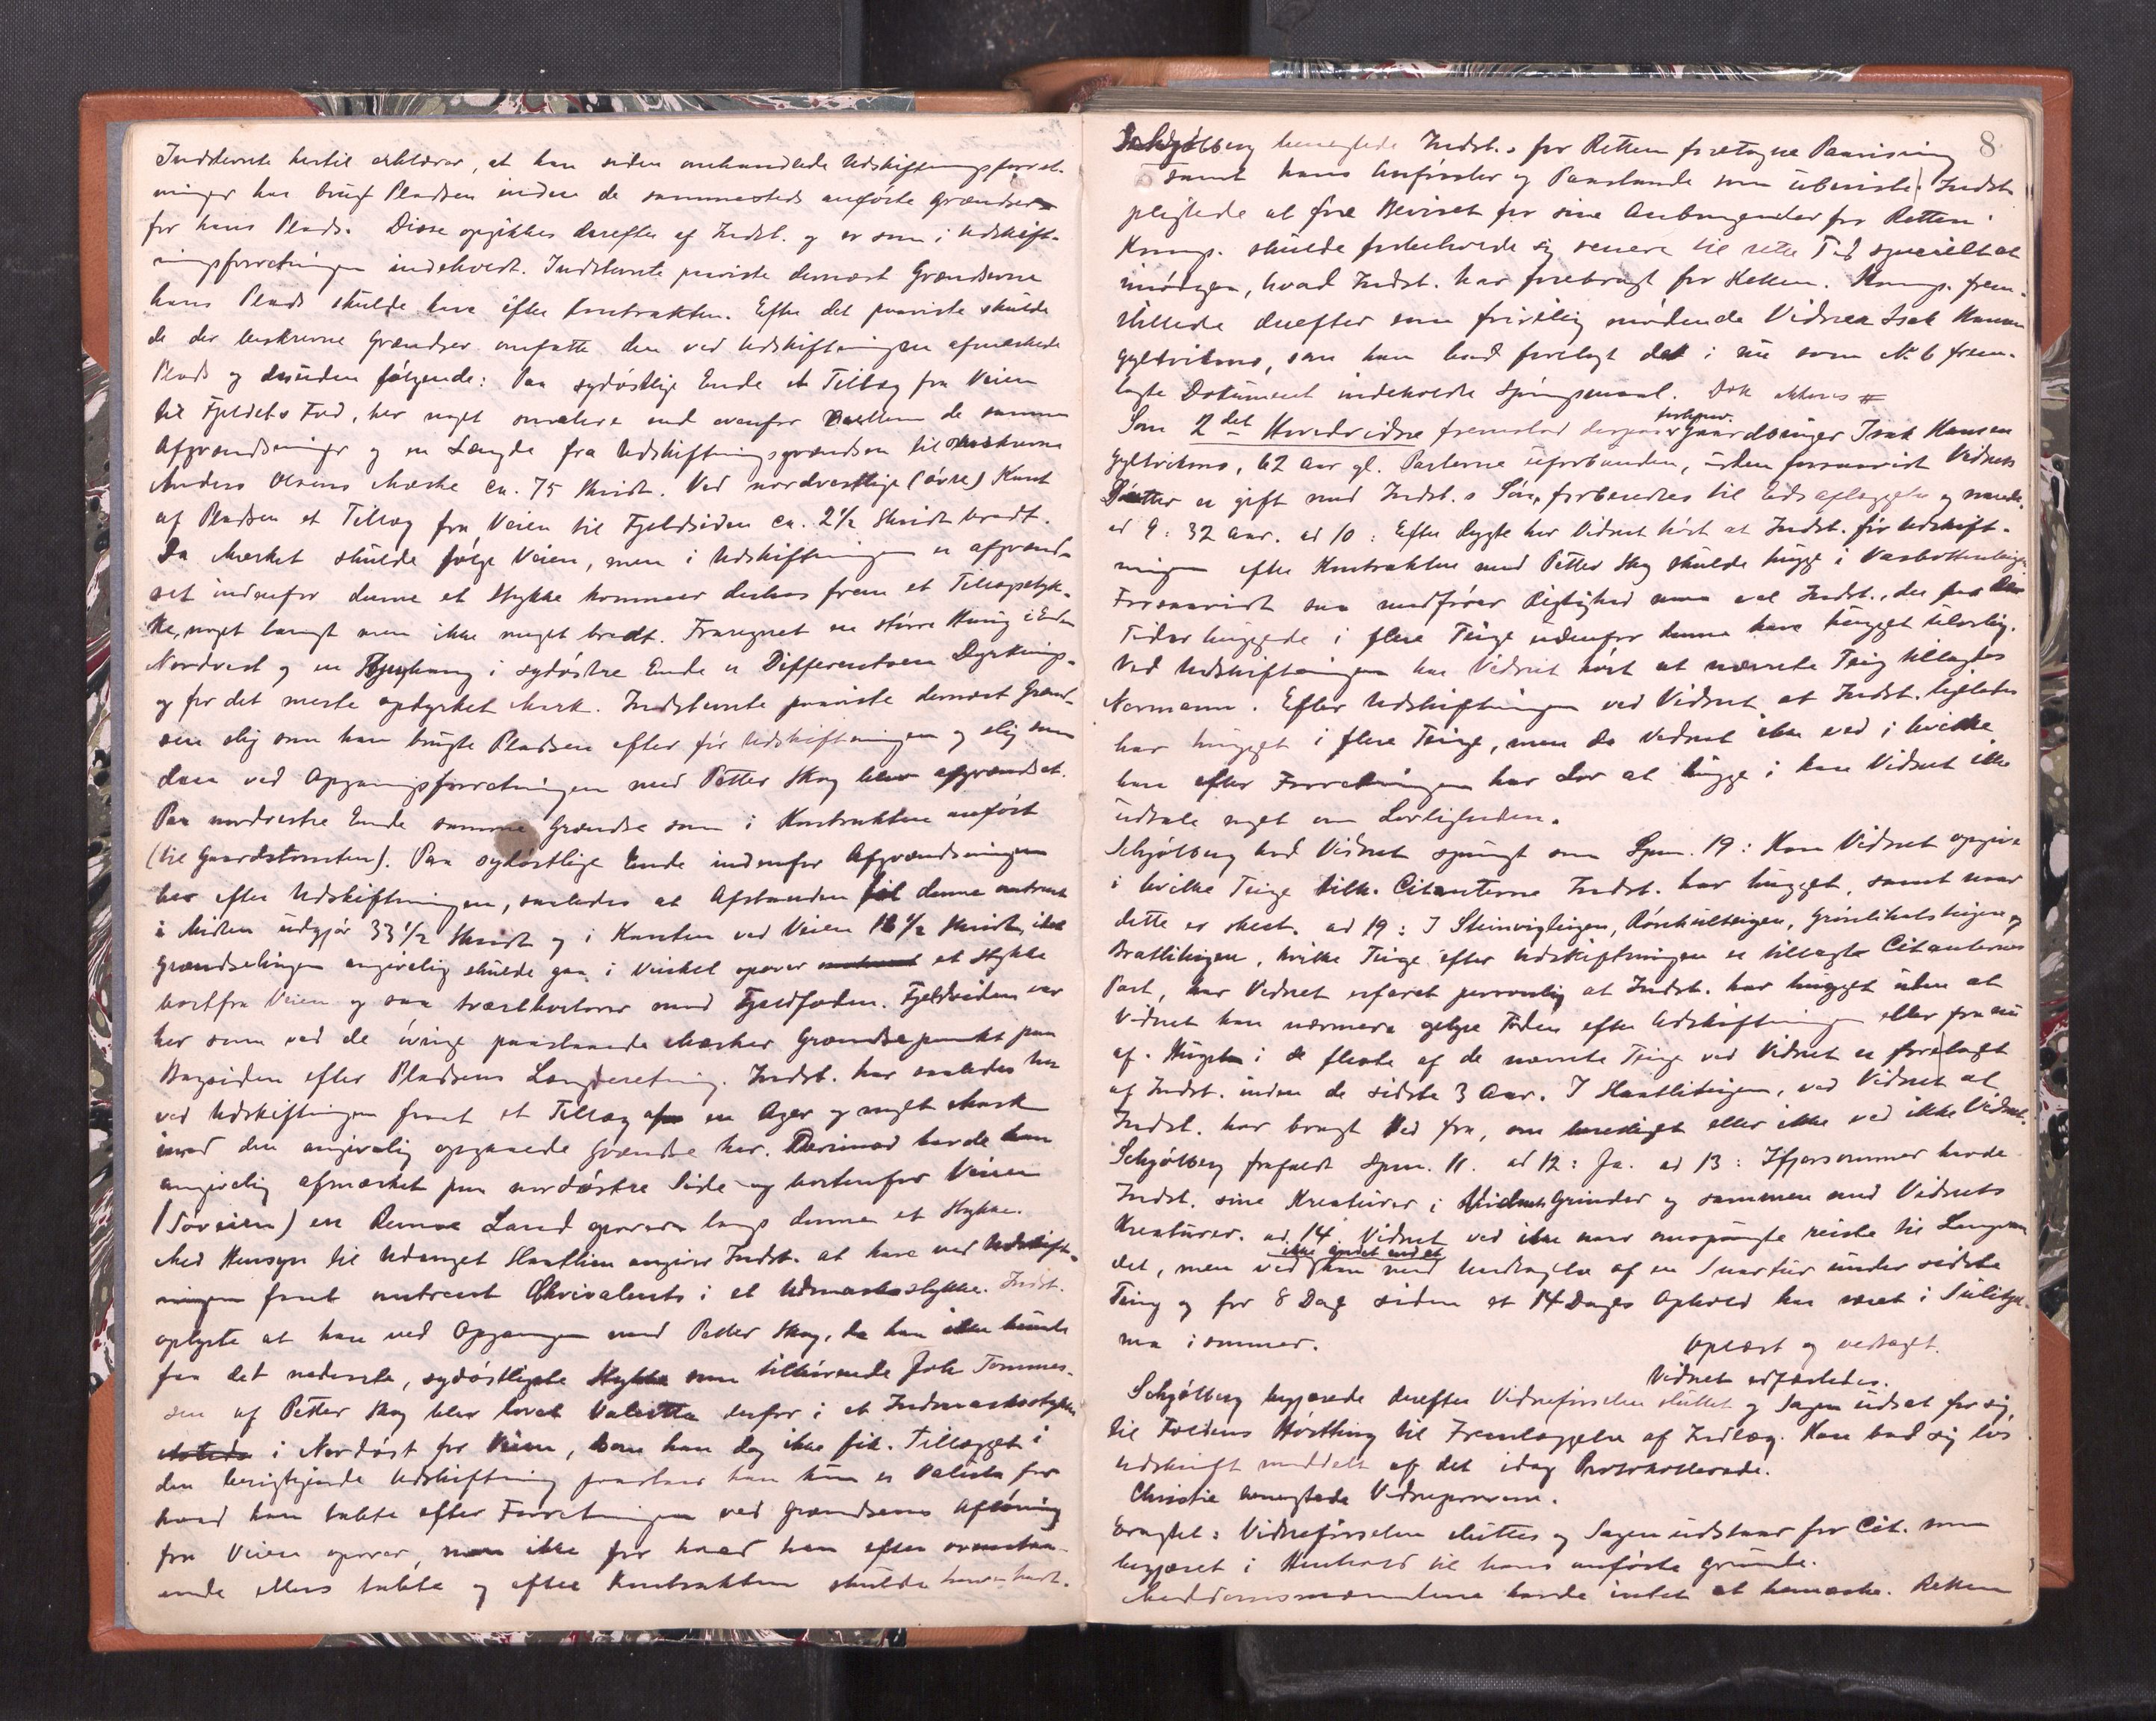 Indstevnte hertil erklærer, at han siden omhandlede Udskiftningsforret-
ninger har brugt Pladsen inden de sammesteds anførte Grændser
for hans Plads. Disse opgikkes derefter af Indst. og er som i Udskift-
ningsforretningen indehvert. Indstevnte paaviste dernæst Grændserne
hans Plads skulde have efter Kontrakten. Efter det paaviste skulde
de der beskrevne Grændser omfatte den ved Udskiftningen afmærkede
Plads og desuden følgende: Paa sydøstlige Ende et Tillæg fra Veien
til Fjeldets Fod, her noget smalere end ovenfor mellem de samme
Afgrændsninger og en Længde fra Udskiftningsgrændsen til
Anders Olsens Mærke ca. 75 Skridt. Ved nordvestlige (øvre) Kant
af Pladsen et Tillæg fra Veien til Fjeldsiden ca. 2½ Skridt bredt.
Da Mærket skulde følge Veien, men i Udskiftningen er afgrænd-
set indenfor denne et Stykke kommer derhos frem et Tillægsstyk-
ke, noget langt men ikke meget bredt. Fraregnet en større Haug i Enden
Nordvest og en i sydøstre Ende er Differentsen Dyrknings-
og for det meste opdyrket Mark. Indstevnte paaviste dernæst Grænd-
sen slig som han brugte Pladsen efter før Udskiftningen og slig som
den ved Opgangsforretningen med Petter Skog blev afgrændset.
Paa nordvestre Ende samme Grændse som i Kontrakten anført
(til Gaardstomten). Paa sydøstlige Ende indenfor Afgrændsningen
her efter Udskiftningen, saaledes at Afstanden til denne omtrent
i Midten udgjør 33½ Skridt og i Kanten ved Veien 12½ Skridt, idet
Grændselinjen angivelig skulde gaa i Vinkel opover et Stykke
bortfra Veien og saa tværtbortover mod Fjeldfoden. Fjeldsiden var
her som ved de øvrige paastaaede Mærker Grændsepunkt paa
Bagsiden efter Pladsens Længderetning. Indst. har saaledes her
ved Udskiftningen faaet et Tillæg af en Ager og noget Mark
imod den angivelig opgaaede Grændse her. Derimod havde han
angivelig afmærket paa nordøstre Side og bortenfor Veien
(Søveien) en Remse Land opover langs denne et Stykke.
Med Hensyn til Udenget Slaatlien angiver Indst. at have ved Udskift-
ningen faaet omtrent Ækvivalents i et Udmarksstykke. Indst.
oplyste at han ved Opgangen med Petter Skog, da han ikke kunde
faa det nederste, sydøstligste Stykke som tilhørende Joh Tommes-
sen af Petter Skog blev lovet Valutta derfor i et Indmarksstykke
i Nordøst for Veien, som han dog ikke fik. Tillægget i
den berigtigende Udskiftning paastaar han kun er Valuta for
hvad han tabte efter Forretningen ved Grændsens Afløsning
fra Veien opover, men ikke for hvad han efter ovenstaa-
ende ellers tabte og efter Kontrakten skulde have havt.
8
Schjølberg benegtede Indst.s for Retten foretagne Paavisning
samt hans Anførsler og Paastande som ubeviste. Indst.
pligtede at føre Beviset for sine Anbringender for Retten.
Komp. skulde forbeholde sig senere til rette Tid specielt at
imødegaa, hvad Indst. har forebragt for Retten. Komp. frem-
stillede derefter som frivillig mødende Vidne Isak Hansen
Gyltviknes, som han bad forelagt det i nu som No 6 frem-
lagte Dokument indeholdte Spørgsmaal. Dok aktores #
Som 2det Hovedvidne fremstod dernæst forhenv. Gaardbruger Isak Hansen
Gyltvikmo, 62 Aar gl. Parterne uforbunden, uden forsaavidt Vidnets
Datter er gift med Indst.s Søn, forberedtes til Edsaflæggelse og svarede:
ad 9: 32 Aar. ad 10: Efter Rygte har Vidnet hørt at Indst. før Udskift-
ningen efter Kontrakten med Petter Skog skulde hugge i
Forsaavidt saa medfører Rigtighed maa vel Indst., der fra
Tider huggede i flere Teige udenfor denne have hugget ulovlig.
Ved Udskiftningen har Vidnet hørt at nævnte Teig tillagdes
Normann. Efter Udskiftningen ved Vidnet at Indst. ligeledes
har hugget i flere Teige, men da Vidnet ikke ved i hvilke
han efter Forretningen har Lov at hugge i kan Vidnet ikke
udtale noget om Lovligheden.
Schjølberg bad Vidnet spurgt som Spm. 19: Kan Vidnet opgive
i hvilke Teige tilh. Citanterne Indst. har hugget, samt naar
dette er skeet. ad 19: I Steinvigteigen, Rønhultteigen, Grønlihalsteigen og
Bratliteigen, hvilke Teige efter Udskiftningen er tillagte Citanternes
Part, har Vidnet erfaret personlig at Indst. har hugget uden at
Vidnet kan nærmere opgive Tiden efter Udskiftningen eller fra nu
af. Hugsten i de fleste af de nævnte Teige ved Vidnet er foretaget
af Indst. inden de sidste 3 Aar. I Slaatliteigen, ved Vidnet at
Indst. har bragt Ved fra, om eller ikke ved ikke Vidnet.
Schjølberg frafaldt Spm. 11. ad 12: Ja. ad 13: Ifjorsommer havde
Indst. sine Kreaturer i Vidnets Grinder og sammen med Vidnets
Kreaturer. ad 14. Vidnet ved ikke naar omspurgte reiste til
det, men ved ikke andet end at han med Undtagelse af en Snartur under sidste
Ting og for 8 Dage siden et 14 Dages Ophold har været i Sulitjel-
ma i sommer.
Oplæst og vedtaget.
Vidnet afskediges.
Schjølberg begjærede derefter Vidneførselen sluttet og Sagen udsat for sig
til Foldens Høstthing til Fremlæggelse af Indlæg. Han bad sig løs
Udskrift meddelt af det idag Protokollerede.
Christie benegtede Vidneprovene.
Eragtet: Vidneførselen sluttes og Sagen udstaar for Cit. som
begjæret i Henhold til hans anførte Grunde.
Meddomsmændene havde intet at bemærke. Retten